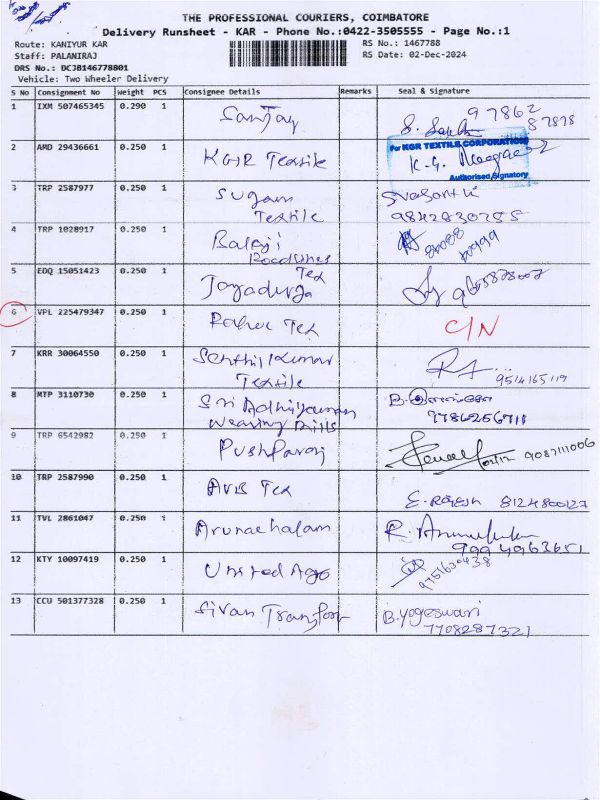 THE PROFESSIONAL COURIERS, COIMBATORE
Delivery Runsheet - KAR - Phone No.:0422-3505555 - Page No.:1
Route: KANIYUR KAR
RS No.: 1467788
Staff: PALANIRAJ
RS Date: 02-Dec-2024
DRS No.: DCJB146778801
Vehicle: Two Wheeler Delivery
S No Consignment No Weight PCS Consignee Details Remarks Seal & Signature
1 IXM 507465345 0.290 1 Sanjay 97862
87878
2 AMD 29436661 0.250 1 KGR Textile For KGR TEXTILS CORPORATION
Authorised Signatory
3 TRP 2587977 0.250 1 Sugam Svasanthi
Textile 9842830755
4 TRP 1028917 0.250 1 Balaji
Roadlines
5 EDQ 15051423 0.250 1 Jayadurga Tex
6 VPL 225479347 0.250 1 Rahul Tex C/N
7 KRR 30064550 0.250 1 Senthilkumar
Textile 9514165119
8 MTP 3110730 0.250 1 Sri Adhiyaman
Weaving Mills 9786256711
9 TRP 6542982 0.250 1 Pushparaj 9087111006
10 TRP 2587990 0.250 1 AVB Tex E. Rajesh 8124800127
11 TVL 2861047 0.250 1 Arunachalam
9994963651
12 KTY 10097419 0.250 1 United Ago 9751630438
13 CCU 501377328 0.250 1 Sivan Transport B. Yogeswari
7708287321